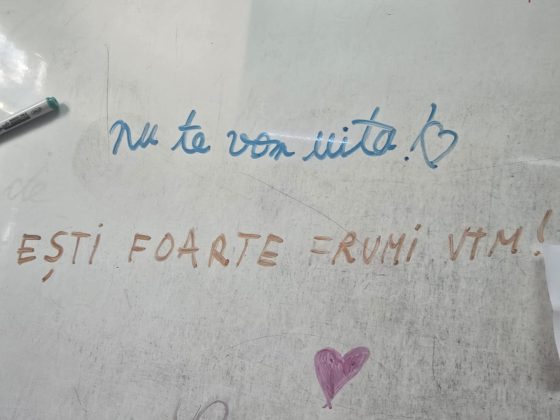 nu te vom uita!♡
EȘTI FOARTE FRUMI VTM!